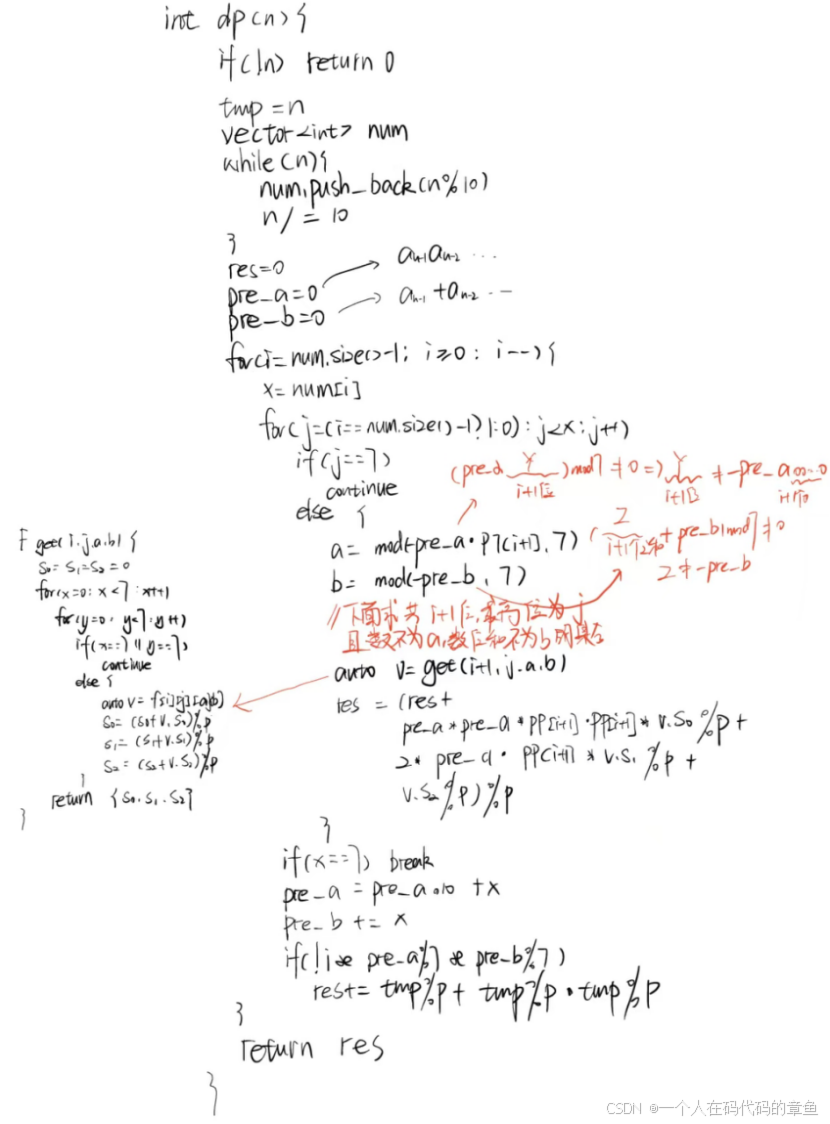 int dp(n){
if(!n) return 0
tmp = n
vector<int> num
while(n){
num.push_back(n%10)
n /= 10
}
res=0
pre_a=0
aₙ₋₁aₙ₋₂ ...
pre_b=0
aₙ₋₁+aₙ₋₂ ...
for(i=num.size()-1; i≥0; i--){
x=num[i]
for(j=(i==num.size()-1?1:0); j<x; j++)
if(j==7)
continue
else {
(pre_a Y) mod7 ≠0 => Y ≠ -pre_a 00...0
i+1位
i+1位
i+1个0
a= mod(-pre_a · P7[i+1], 7)
b= mod(-pre_b, 7)
(Z + pre_b)mod7 ≠0
Z ≠ -pre_b
//下面求共i+1位,最高位为j
且数不为a,数位和不为b的集合
auto v=get(i+1, j, a, b)
res = (res+
pre_a * pre_a * PP[i+1] · PP[i+1] * v.S₀ %p +
2* pre_a · PP[i+1] * v.S₁ %p +
v.S₂ %p) %p
}
if(x==7) break
pre_a = pre_a·10 +x
pre_b += x
if(!i && pre_a%7 && pre_b%7)
res+= tmp%p · tmp%p
}
return res
}
F get(i.j.a.b) {
S₀= S₁=S₂=0
for(x=0; x<7; x++)
for(y=0; y<7; y++)
continue
else {
auto v= f[i][j][a][b]
S₀= (S₀+V.S₀)%p
S₁= (S₁+V.S₁)%p
S₂= (S₂+V.S₂)%p
}
return {S₀.S₁.S₂}
}
CSDN @一个人在码代码的章鱼